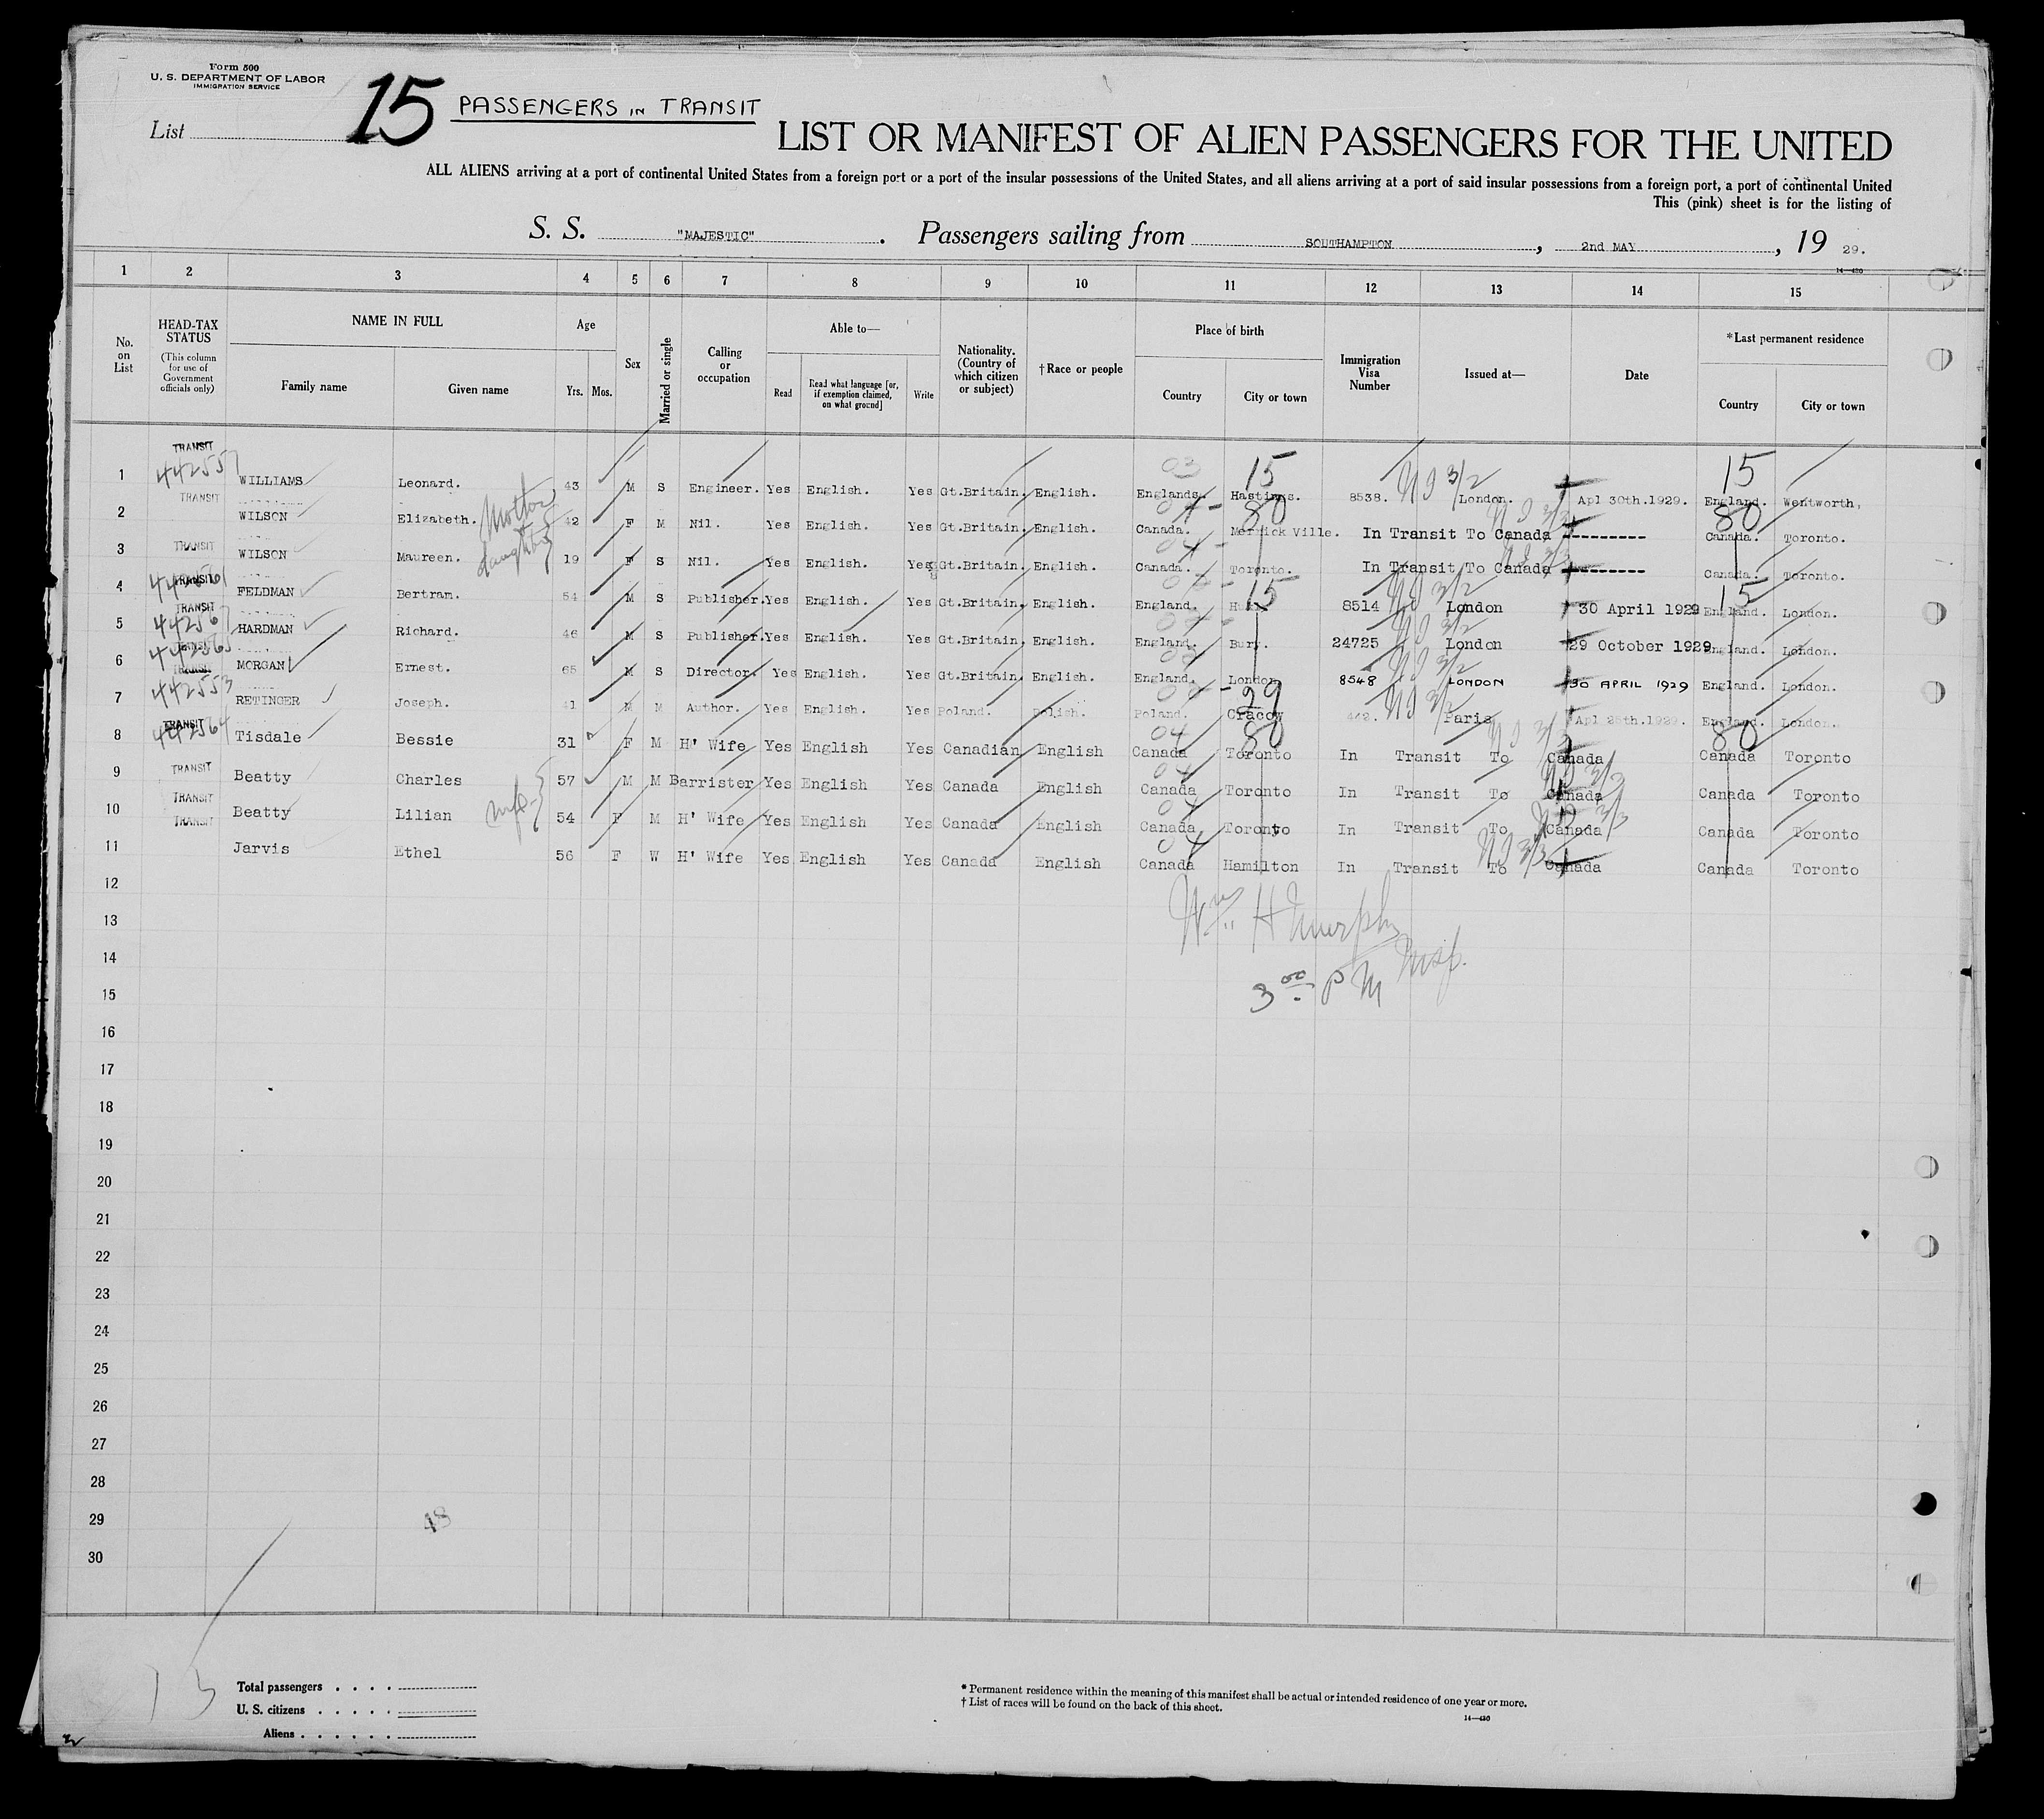 Form 500
U. S. DEPARTMENT OF LABOR
IMMIGRATION SERVICE
List 15 PASSENGERS IN TRANSIT
LIST OR MANIFEST OF ALIEN PASSENGERS FOR THE UNITED
ALL ALIENS arriving at a port of continental United States from a foreign port or a port of the insular possessions of the United States, and all aliens arriving at a port of said insular possessions from a foreign port, a port of continental United
This (pink) sheet is for the listing of
S. S. "MAJESTIC". Passengers sailing from SOUTHAMPTON, 2nd MAY, 19 29.
14—430
1 2 3 4 5 6 7 8 9 10 11 12 13 14 15
No. on List
HEAD-TAX STATUS
(This column for use of Government officials only)
NAME IN FULL
Family name Given name
Age
Yrs. Mos.
Sex
Married or single
Calling or occupation
Able to—
Read
Read what language [or, if exemption claimed, on what ground]
Write
Nationality. (Country of which citizen or subject)
†Race or people
Place of birth
Country City or town
Immigration Visa Number
Issued at—
Date
*Last permanent residence
Country City or town
TRANSIT
1 442557 WILLIAMS Leonard. 43 M S Engineer. Yes English. Yes Gt.Britain. English. 03 Englands. 15 Hastings. 8538. London. Apl 30th.1929. 15 England. Wentworth,
TRANSIT
2 WILSON Elizabeth. Mother 42 F M Nil. Yes English. Yes Gt.Britain. English. Canada. 80 Merrick Ville. In Transit To Canada --------- 80 Canada. Toronto.
TRANSIT
3 WILSON Maureen. daughter 19 F S Nil. Yes English. Yes Gt.Britain. English. Canada. Toronto. In Transit To Canada --------- Canada. Toronto.
TRANSIT
4 FELDMAN Bertram. 54 M S Publisher. Yes English. Yes Gt.Britain. English. England. 15 8514 London 30 April 1929 15 England. London.
TRANSIT
5 HARDMAN Richard. 46 M S Publisher. Yes English. Yes Gt.Britain. English. England. Bury. 24725 London 29 October 1929 England. London.
TRANSIT
6 MORGAN Ernest. 65 M S Director. Yes English. Yes Gt.Britain. English. England. London 8548 LONDON 30 APRIL 1929 England. London.
TRANSIT
7 442553 RETINGER Joseph. 41 M M Author. Yes English. Yes Poland. Polish. Poland. 29 Cracow 442. Paris Apl 25th.1929. England. London.
TRANSIT
8 442564 Tisdale Bessie 31 F M H' Wife Yes English Yes Canadian English 04 Canada 80 Toronto In Transit To Canada 80 Canada Toronto
TRANSIT
9 Beatty Charles 57 M M Barrister Yes English Yes Canada English 04 Canada Toronto In Transit To Canada Canada Toronto
TRANSIT
10 Beatty Lilian wife 54 F M H' Wife Yes English Yes Canada English 04 Canada Toronto In Transit To Canada Canada Toronto
TRANSIT
11 Jarvis Ethel 56 F W H' Wife Yes English Yes Canada English 04 Canada Hamilton In Transit To Canada Canada Toronto
12
13 Wm H Murphy
14 Insp.
15 3 00 PM
16
17
18
19
20
21
22
23
24
25
26
27
28
29 48
30
Total passengers . . . .
U. S. citizens . . . . .
Aliens . . . . . .
* Permanent residence within the meaning of this manifest shall be actual or intended residence of one year or more.
† List of races will be found on the back of this sheet.
14—430